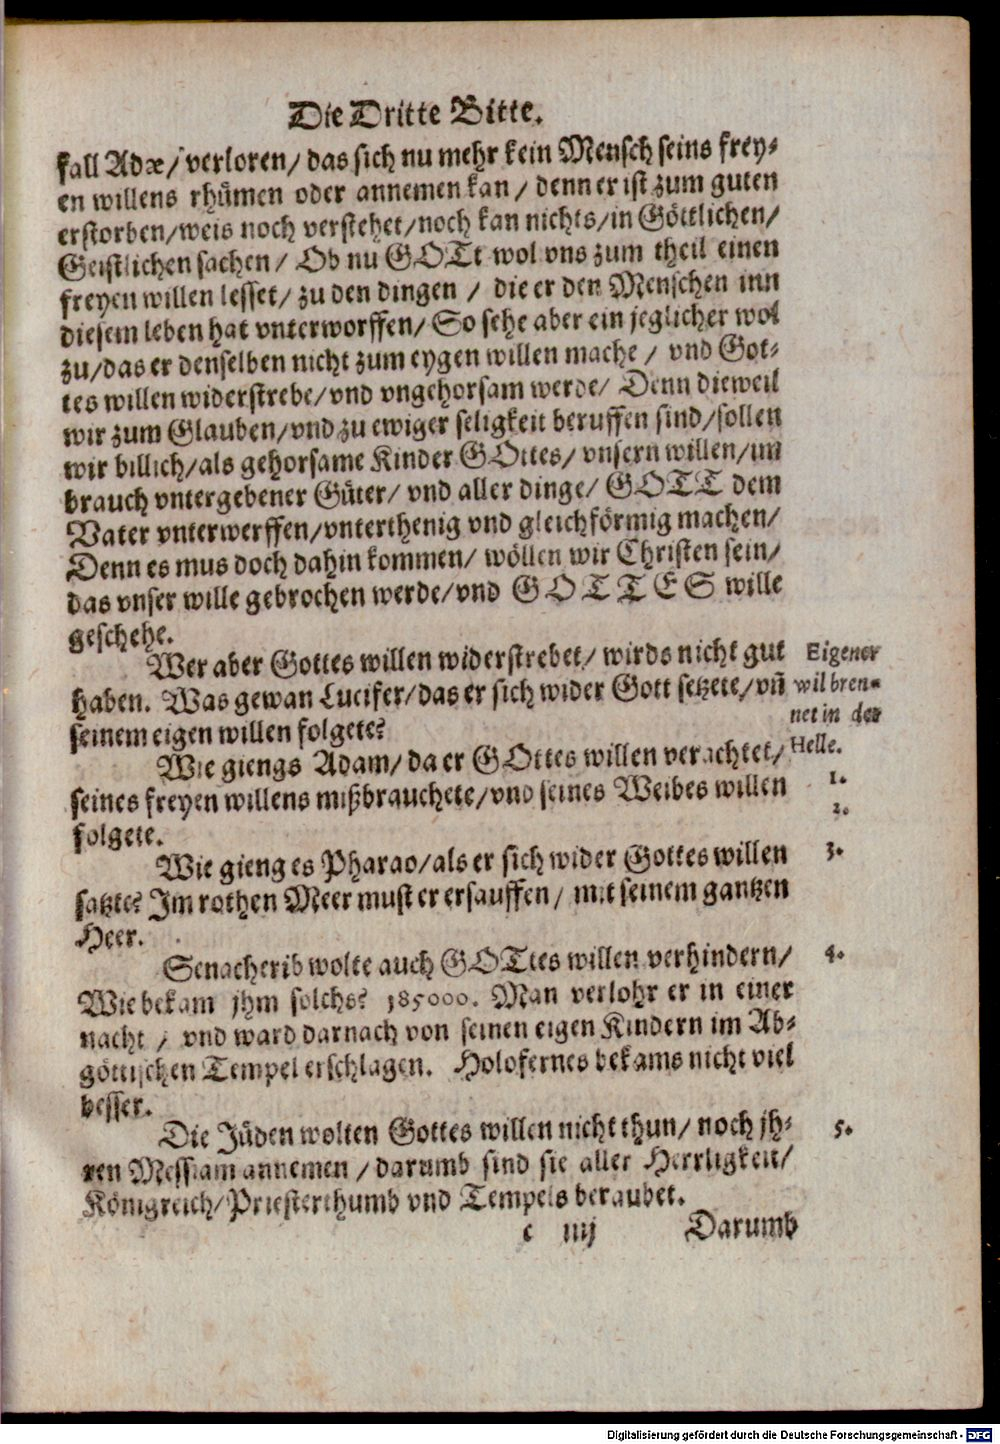 Die Dritte Bitte.
fall Adæ/ verloren/ das sich nu mehr kein Mensch seins frey-
en willens rhümen oder annemen kan/ denn er ist zum guten
erstorben/ weis noch verstehet/ noch kan nichts/ in Göttlichen/
Geistlichen sachen/ Ob nu GOTt wol vns zum theil einen
freyen willen lesset/ zu den dingen/ die er den Menschen inn
diesem leben hat vnterworffen/ So sehe aber ein jeglicher wol
zu/ das er denselben nicht zum eygen willen mache/ vnd Got-
tes willen widerstrebe/ vnd vngehorsam werde/ Denn dieweil
wir zum Glauben/ vnd zu ewiger seligkeit beruffen sind/ sollen
wir billich/ als gehorsame Kinder GOttes/ vnsern willen/ im
brauch vntergebener Güter/ vnd aller dinge/ GOTT dem
Vater vnterwerffen/ vnterthenig vnd gleichförmig machen/
Denn es mus doch dahin kommen/ wöllen wir Christen sein/
das vnser wille gebrochen werde/ vnd GOTTES wille
geschehe.
Wer aber Gottes willen widerstrebet/ wirds nicht gut
haben. Was gewan Lucifer/ das er sich wider Gott setzete/ vñ
seinem eigen willen folgete?
Eigener
wil bren-
net in der
Helle.
1.
Wie giengs Adam/ da er GOttes willen verachtet/
seines freyen willens mißbrauchete/ vnd seines Weibes willen
folgete.
2.
Wie gieng es Pharao/ als er sich wider Gottes willen
satzte? Im rothen Meer must er ersauffen/ mit seinem gantzen
Heer.
3.
Senacherib wolte auch GOTtes willen verhindern/
Wie bekam jhm solchs? 185000. Man verlohr er in einer
nacht/ vnd ward darnach von seinen eigen Kindern im Ab-
göttischen Tempel erschlagen. Holofernes bekams nicht viel
besser.
4.
Die Jüden wolten Gottes willen nicht thun/ noch jh-
ren Messiam annemen/ darumb sind sie aller Herrligkeit/
Königreich/ Priesterthumb vnd Tempels beraubet.
5.
c iiij Darumb
Digitalisierung gefördert durch die Deutsche Forschungsgemeinschaft - DFG